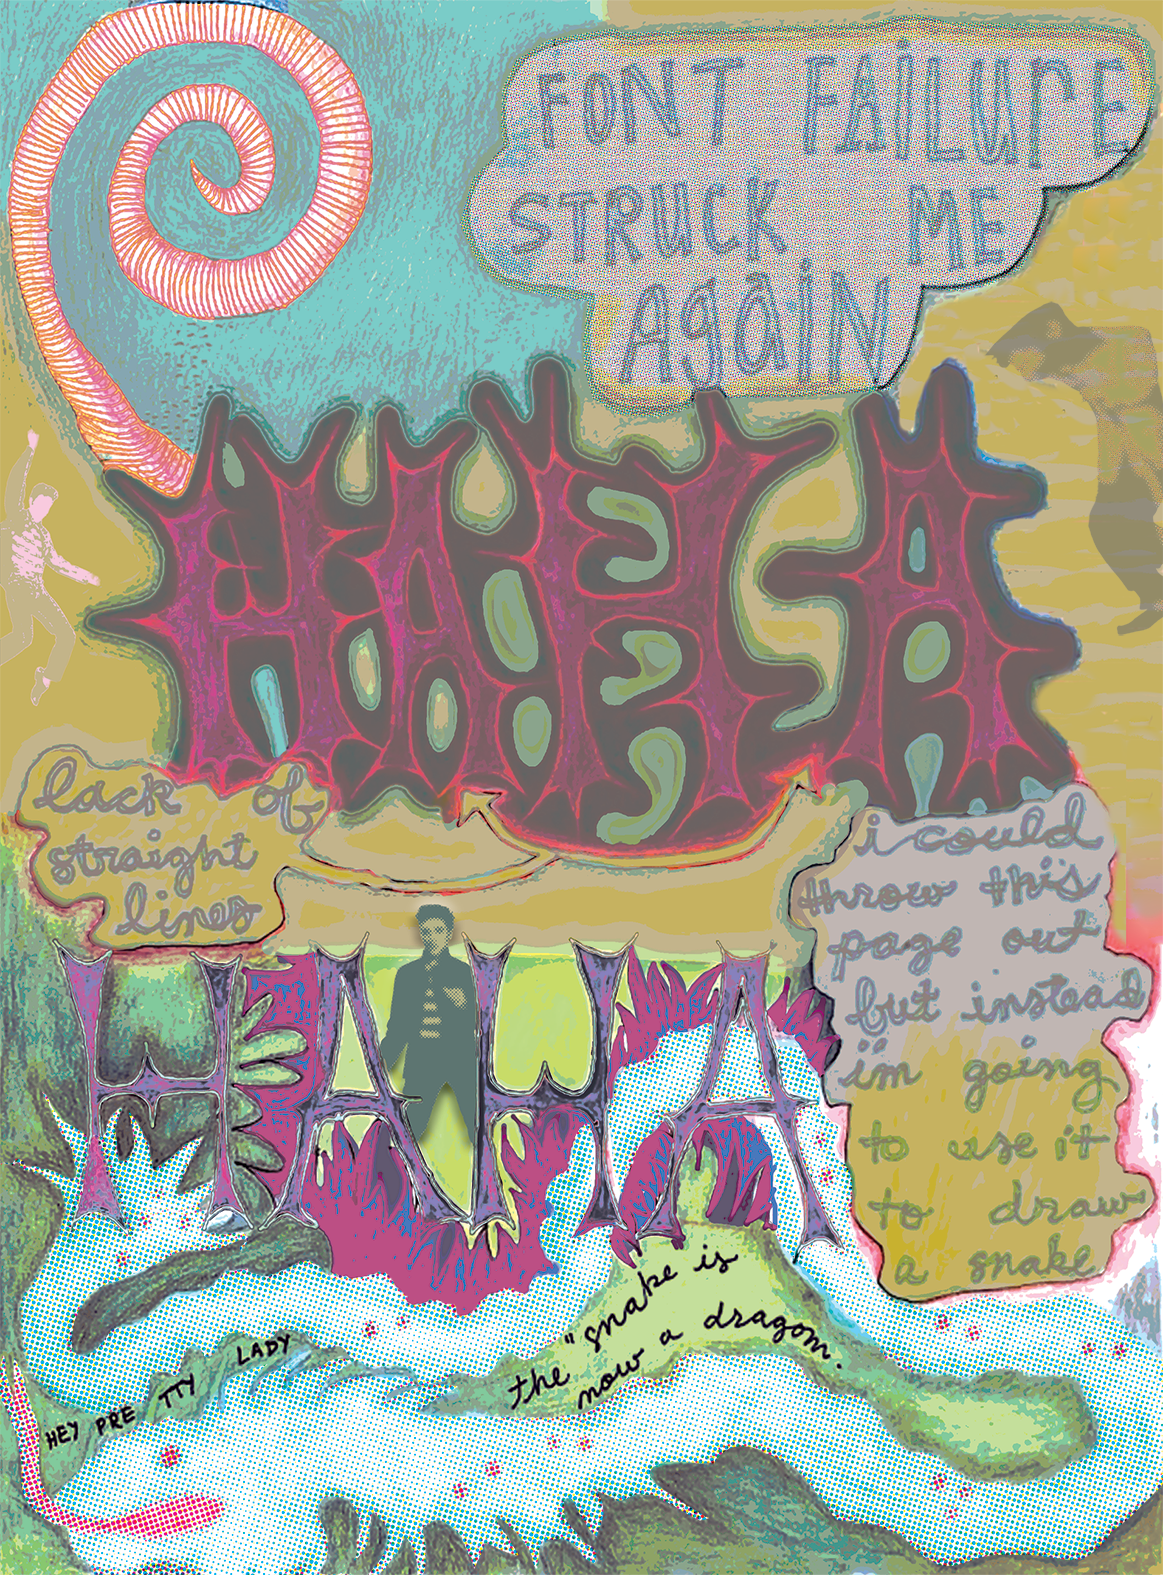 FONT FAILURE
STRUCK ME
AGAIN
HAHA
lack of
straight
lines
i could
throw this
page out
but instead
im going
to use it
to draw
a snake
HAHA
the "snake is
now a dragon.
HEY PRE TTY LADY